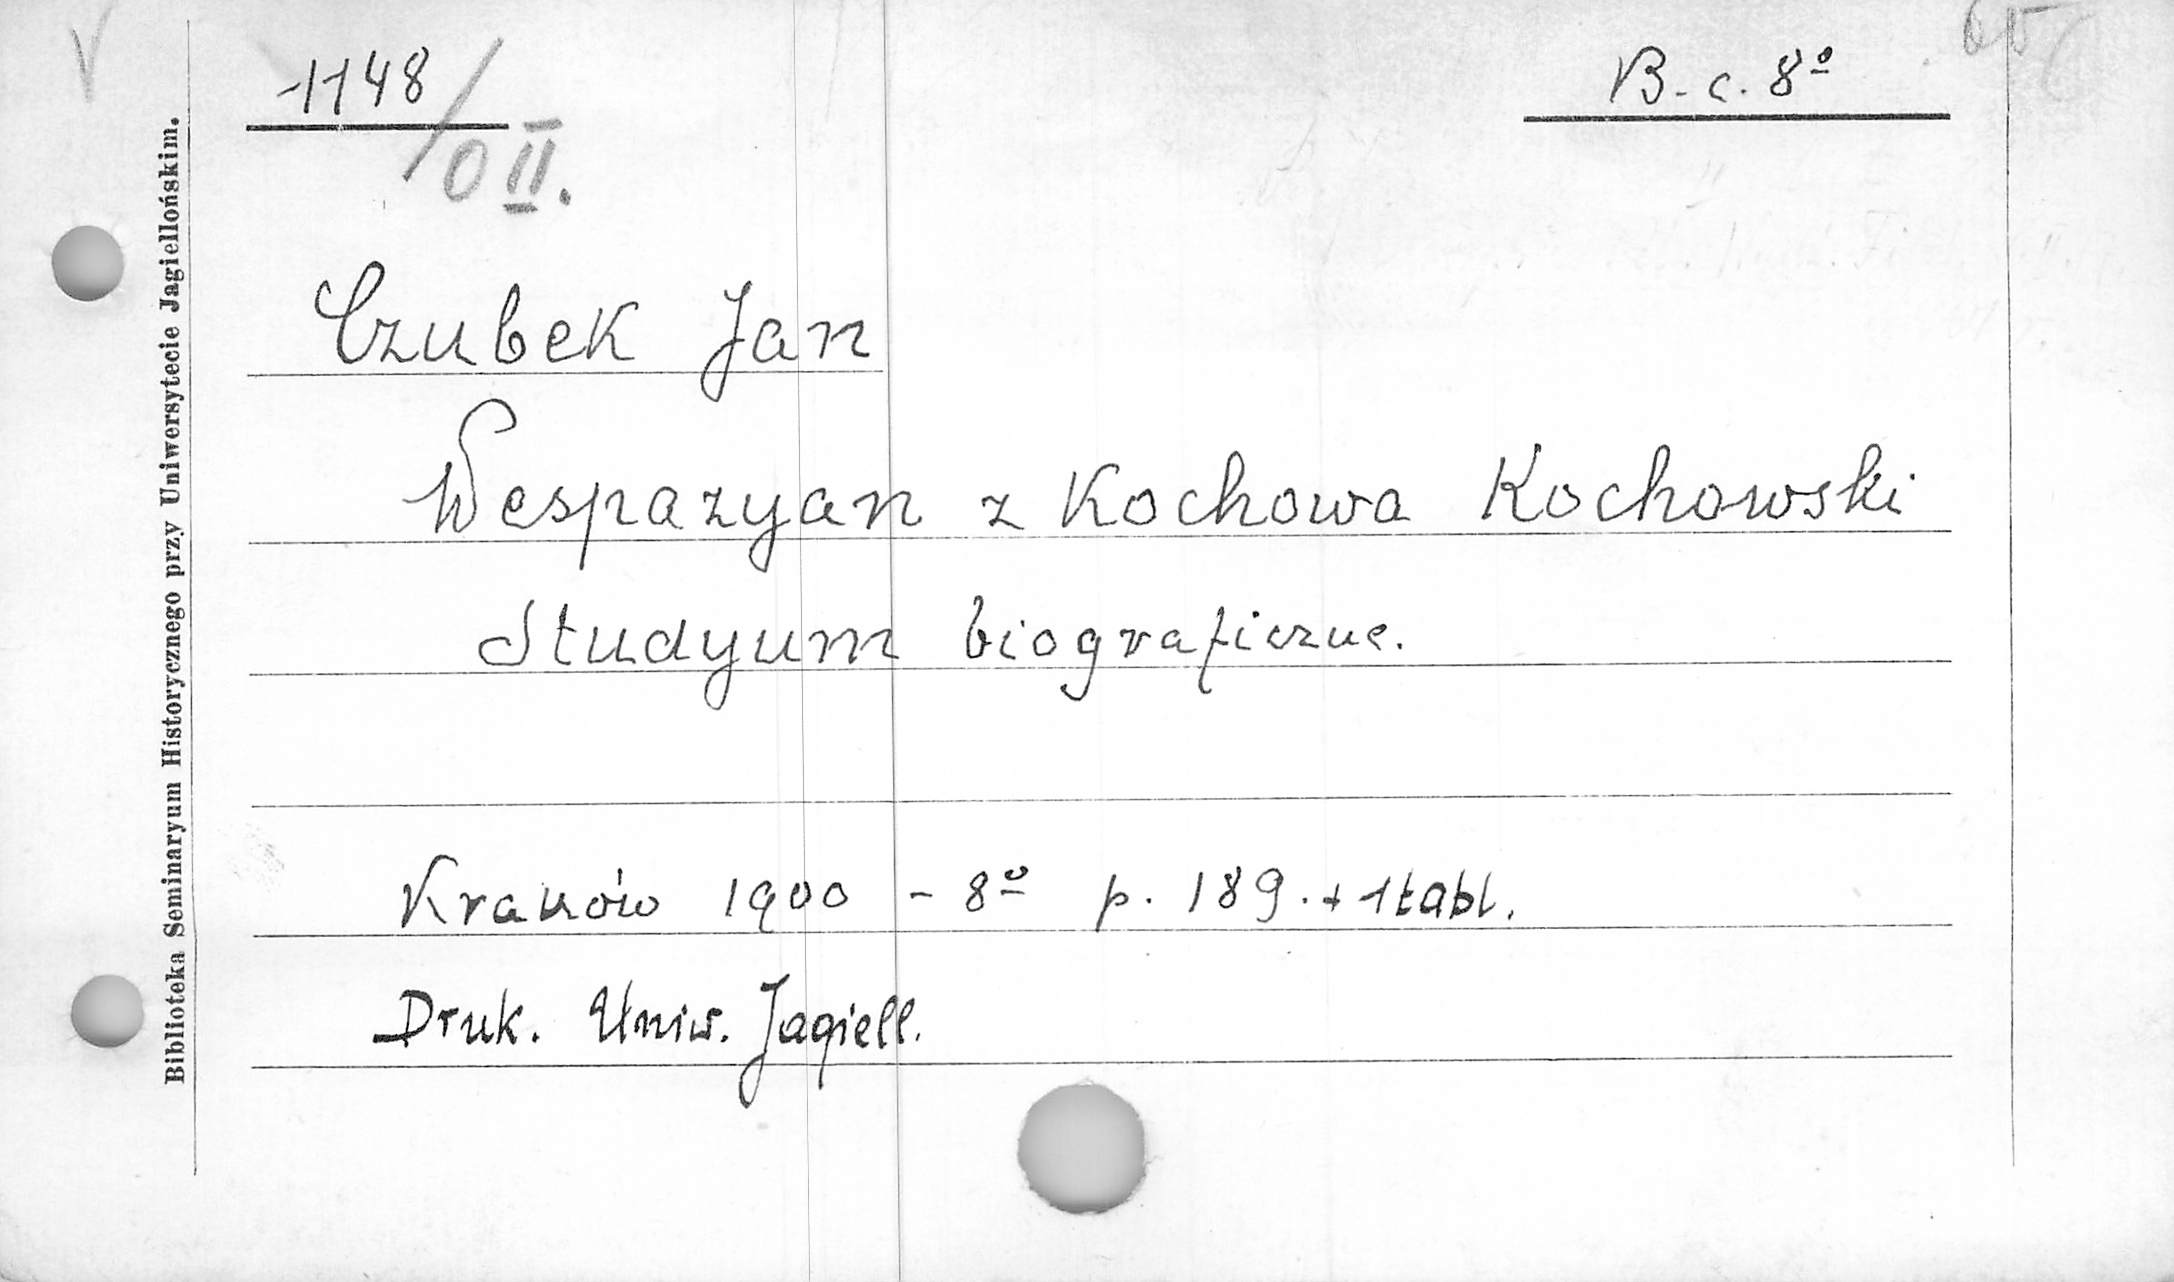 1148/OII.
B. c. 8º
Czubek Jan
Wespazyan z Kochowa Kochowski
Studyum biograficzne.
Kraków 1900 - 8º p. 189. + 1 tabl.
Druk. Uniw. Jagiell.
Biblioteka Seminaryum Historycznego przy Uniwersytecie Jagiellońskim.